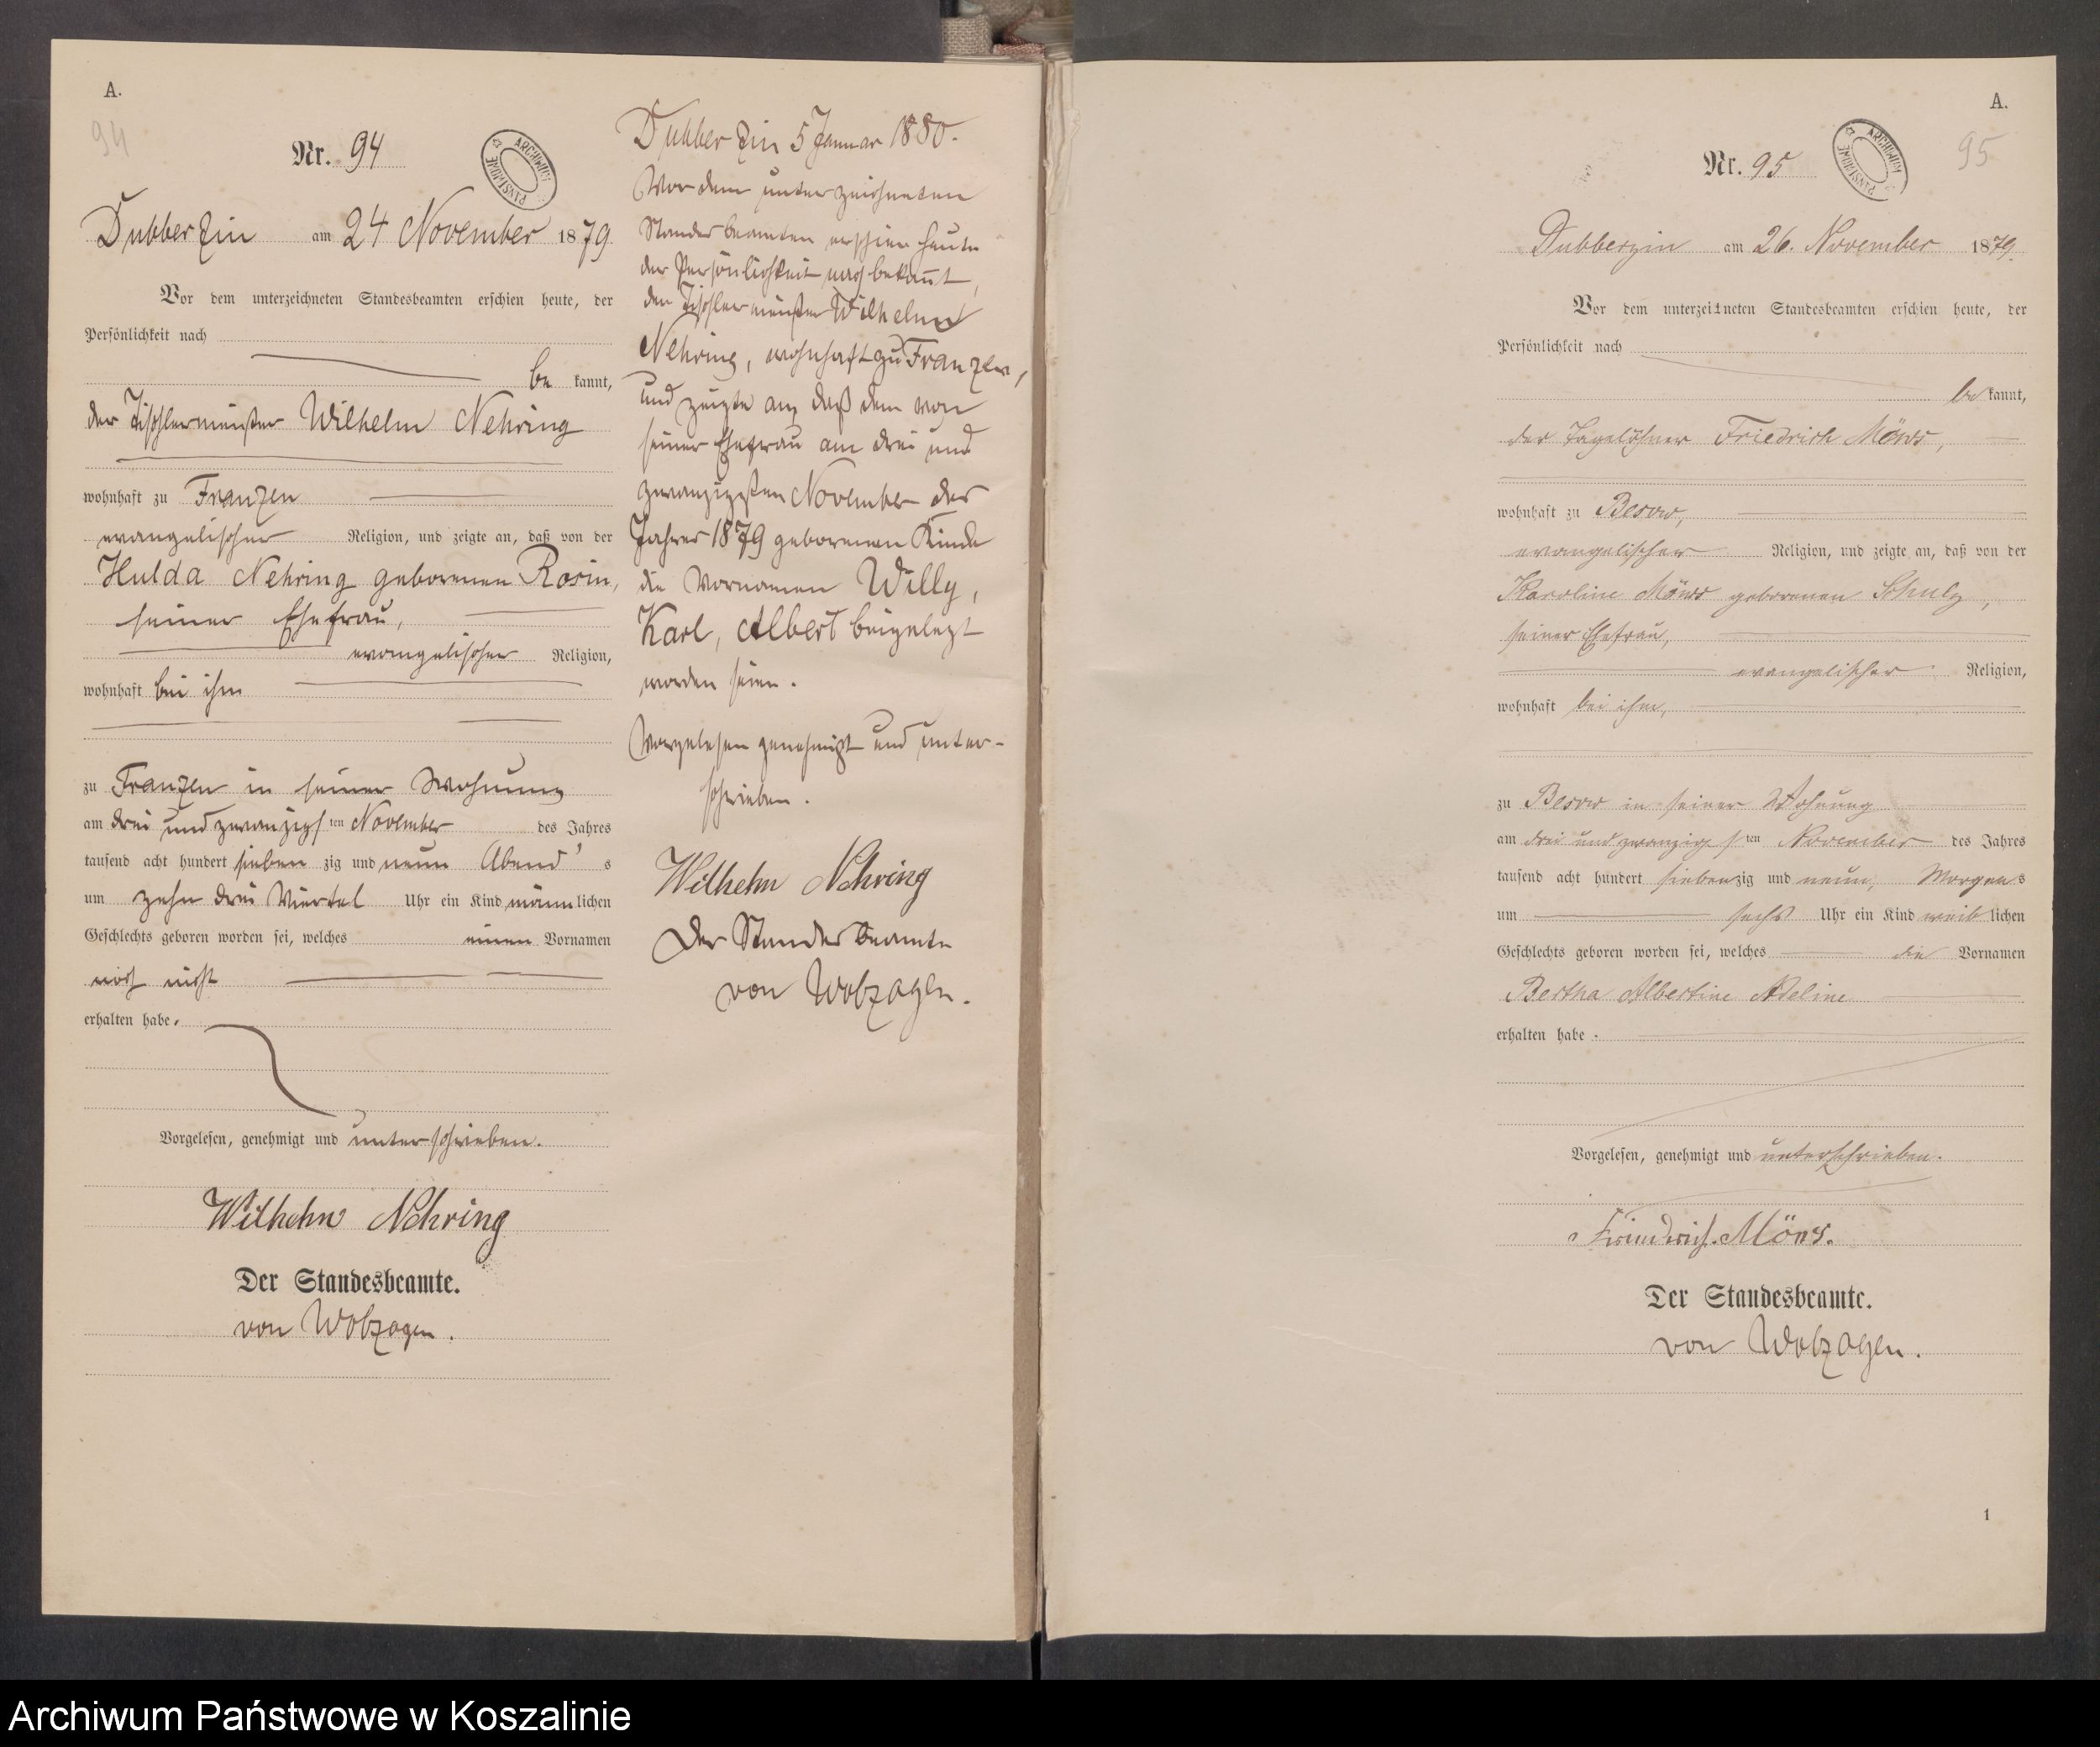 A.
94
Nr. 94
ARCHIWUM PAŃSTWOWE
Dubberzin am 24 November 1879.
Vor dem unterzeichneten Standesbeamten erschien heute, der
Persönlichkeit nach
be kannt,
der Tischlermeister Wilhelm Nehring
wohnhaft zu Franzen
evangelischer Religion, und zeigte an, daß von der
Hulda Nehring geborenen Rosin,
seiner Ehefrau,
evangelischer Religion,
wohnhaft bei ihm
zu Franzen in seiner Wohnung
am drei und zwanzigsten November des Jahres
tausend acht hundert siebenzig und neun Abend's
um zehn drei Viertel Uhr ein Kind männlichen
Geschlechts geboren worden sei, welches einen Vornamen
noch nicht
erhalten habe.
Vorgelesen, genehmigt und unterschrieben.
Wilhelm Nehring
Der Standesbeamte.
von Wolzogen.
Dubberzin 5 Januar 1880.
Vor dem unterzeichneten
Standesbeamten erschien heute
der Persönlichkeit nach bekannt,
der Tischlermeister Wilhelm
Nehring, wohnhaft zu Franzen,
und zeigte an, daß dem von
seiner Ehefrau am drei und
zwanzigsten November des
Jahres 1879 geborenen Kinde
die Vornamen Willy,
Karl, Albert beigelegt
worden seien.
Vorgelesen genehmigt und unter-
schrieben.
Wilhelm Nehring
Der Standesbeamte
von Wolzogen.
A.
95
Nr. 95
ARCHIWUM PAŃSTWOWE
Dubberzin am 26. November 1879.
Vor dem unterzeichneten Standesbeamten erschien heute, der
Persönlichkeit nach
be kannt,
der Tagelöhner Friedrich Möws,
wohnhaft zu Besow,
evangelischer Religion, und zeigte an, daß von der
Karoline Möws geborenen Schulz,
seiner Ehefrau,
evangelischer Religion,
wohnhaft bei ihm,
zu Besow in seiner Wohnung
am drei und zwanzigsten November des Jahres
tausend acht hundert siebenzig und neun, Morgens
um sechs Uhr ein Kind weiblichen
Geschlechts geboren worden sei, welches die Vornamen
Bertha Albertine Adeline
erhalten habe.
Vorgelesen, genehmigt und unterschrieben.
Friedrich. Möws.
Der Standesbeamte.
von Wolzogen.
1
Archiwum Państwowe w Koszalinie